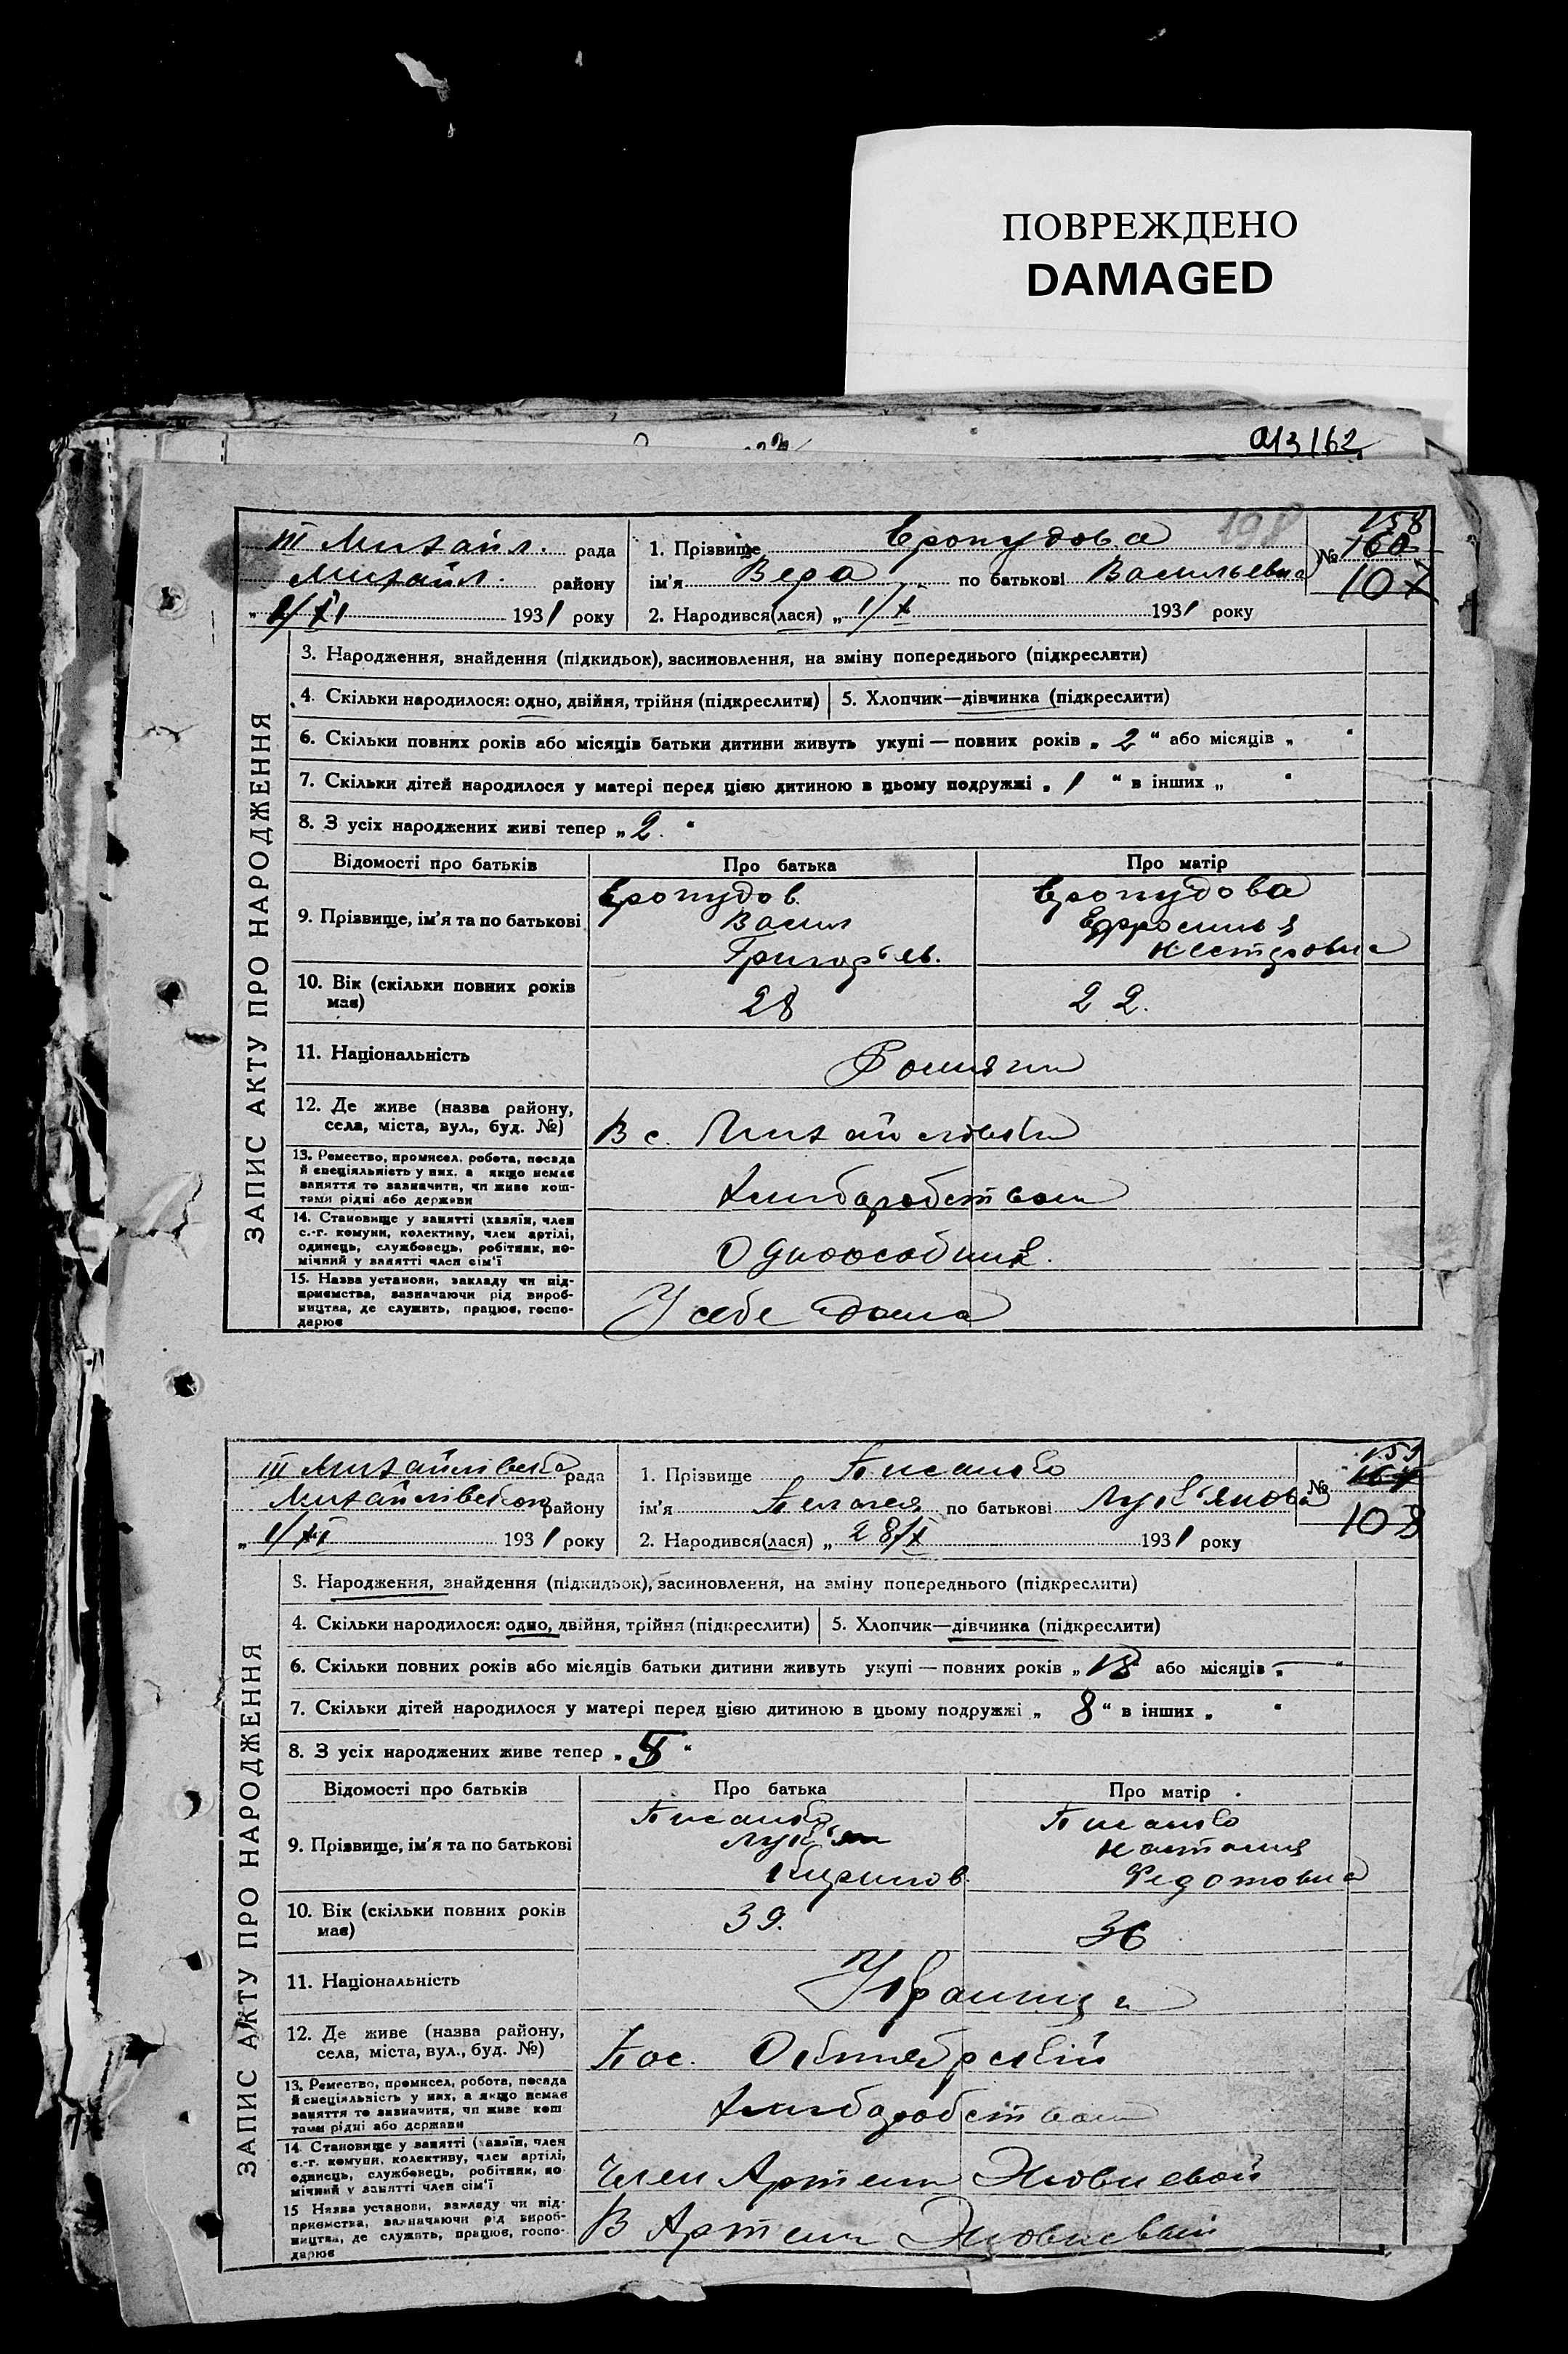 ПОВРЕЖДЕНО
DAMAGED
ЗАПИС АКТУ ПРО НАРОДЖЕННЯ
III Михайл. рада
Михайл. району
1/XI 1931 року
198
1. Прізвище Еропудова
ім'я Вера по батькові Васильевна
2. Народився(лася) „ 1/X 1931 року
№ 158
160
107
3. Народження, знайдення (підкидьок), засиновлення, на зміну попереднього (підкреслити)
4. Скільки народилося: одно, двійня, трійня (підкреслити) 5. Хлопчик—дівчинка (підкреслити)
6. Скільки повних років або місяців батьки дитини живуть укупі — повних років „ 2 “ або місяців „ “
7. Скільки дітей народилося у матері перед цією дитиною в цьому подружжі „ 1 “ в інших „ “
8. З усіх народжених живі тепер „ 2. “
Відомості про батьків Про батька Про матір
9. Прізвище, ім'я та по батькові
Еропудов
Васил
Григорьев.
Еропудова
Ефросинья
Нестеровна
10. Вік (скільки повних років має) 28 22.
11. Національність
12. Де живе (назва району,
села, міста, вул., буд. №) В с. Михайловки
13. Ремество, промисел, робота, посада
й спеціяльність у них, а якщо немає
заняття то зазначити, чи живе кош-
тами рідні або держави
Хлибаробством
14. Становище у занятті (хазяїн, член
с.-г. комуни, колективу, член артілі,
одинець, службовець, робітник, по-
мічний у занятті член сім'ї
Одноособник.
15. Назва установи, закладу чи під-
приємства, зазначаючи рід вироб-
ництва, де служить, працює, госпо-
дарює
У себе дома
ЗАПИС АКТУ ПРО НАРОДЖЕННЯ
III Михайлівська рада
Михайлівськой району
„ 1/XI 1931 року
1. Прізвище Писанко
ім'я Пелагея по батькові Лук'янова
2. Народився(лася) „ 28/X 1931 року
№ 159
108
3. Народження, знайдення (підкидьок), засиновлення, на зміну попереднього (підкреслити)
4. Скільки народилося: одно, двійня, трійня (підкреслити) 5. Хлопчик—дівчинка (підкреслити)
6. Скільки повних років або місяців батьки дитини живуть укупі — повних років „ 18 “ або місяців „ — “
7. Скільки дітей народилося у матері перед цією дитиною в цьому подружжі „ 8 “ в інших „ “
8. З усіх народжених живе тепер „ 5 “
Відомості про батьків Про батька Про матір
9. Прізвище, ім'я та по батькові
Писанко
Лук'ян
Кирилов.
Писанко
Наталия
Федотовна
10. Вік (скільки повних років має) 39. 36
11. Національність Украинци
12. Де живе (назва району,
села, міста, вул., буд. №) Пос. Октябрский
13. Ремество, промисел, робота, посада
й спеціяльність у них, а якщо немає
заняття то зазначити, чи живе кош-
тами рідні або держави
Хлибаробством
14. Становище у занятті (хазяїн, член
с.-г. комуни, колективу, член артілі,
одинець, службовець, робітник, по-
мічний у занятті член сім'ї
Член Артели
15. Назва установи, закладу чи під-
приємства, зазначаючи рід вироб-
ництва, де служить, працює, госпо-
дарює
В Артели